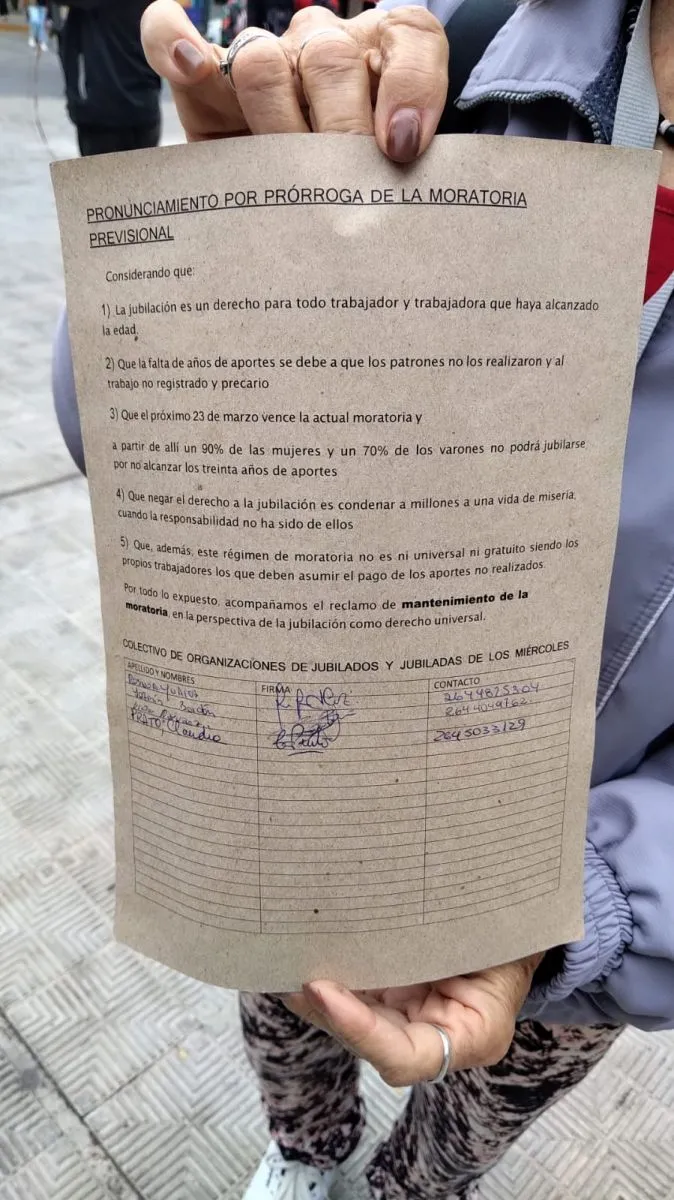 PRONUNCIAMIENTO POR PRÓRROGA DE LA MORATORIA
PREVISIONAL
Considerando que:
1) La jubilación es un derecho para todo trabajador y trabajadora que haya alcanzado
la edad.
2) Que la falta de años de aportes se debe a que los patrones no los realizaron y al
trabajo no registrado y precario
3) Que el próximo 23 de marzo vence la actual moratoria y
a partir de allí un 90% de las mujeres y un 70% de los varones no podrá jubilarse
por no alcanzar los treinta años de aportes
4) Que negar el derecho a la jubilación es condenar a millones a una vida de miseria,
cuando la responsabilidad no ha sido de ellos
5) Que, además, este régimen de moratoria no es ni universal ni gratuito siendo los
propios trabajadores los que deben asumir el pago de los aportes no realizados.
Por todo lo expuesto, acompañamos el reclamo de mantenimiento de la
moratoria, en la perspectiva de la jubilación como derecho universal.
COLECTIVO DE ORGANIZACIONES DE JUBILADOS Y JUBILADAS DE LOS MIÉRCOLES
APELLIDO Y NOMBRES FIRMA CONTACTO
2644825304
2644049762
PRATO, Claudio 2645033129